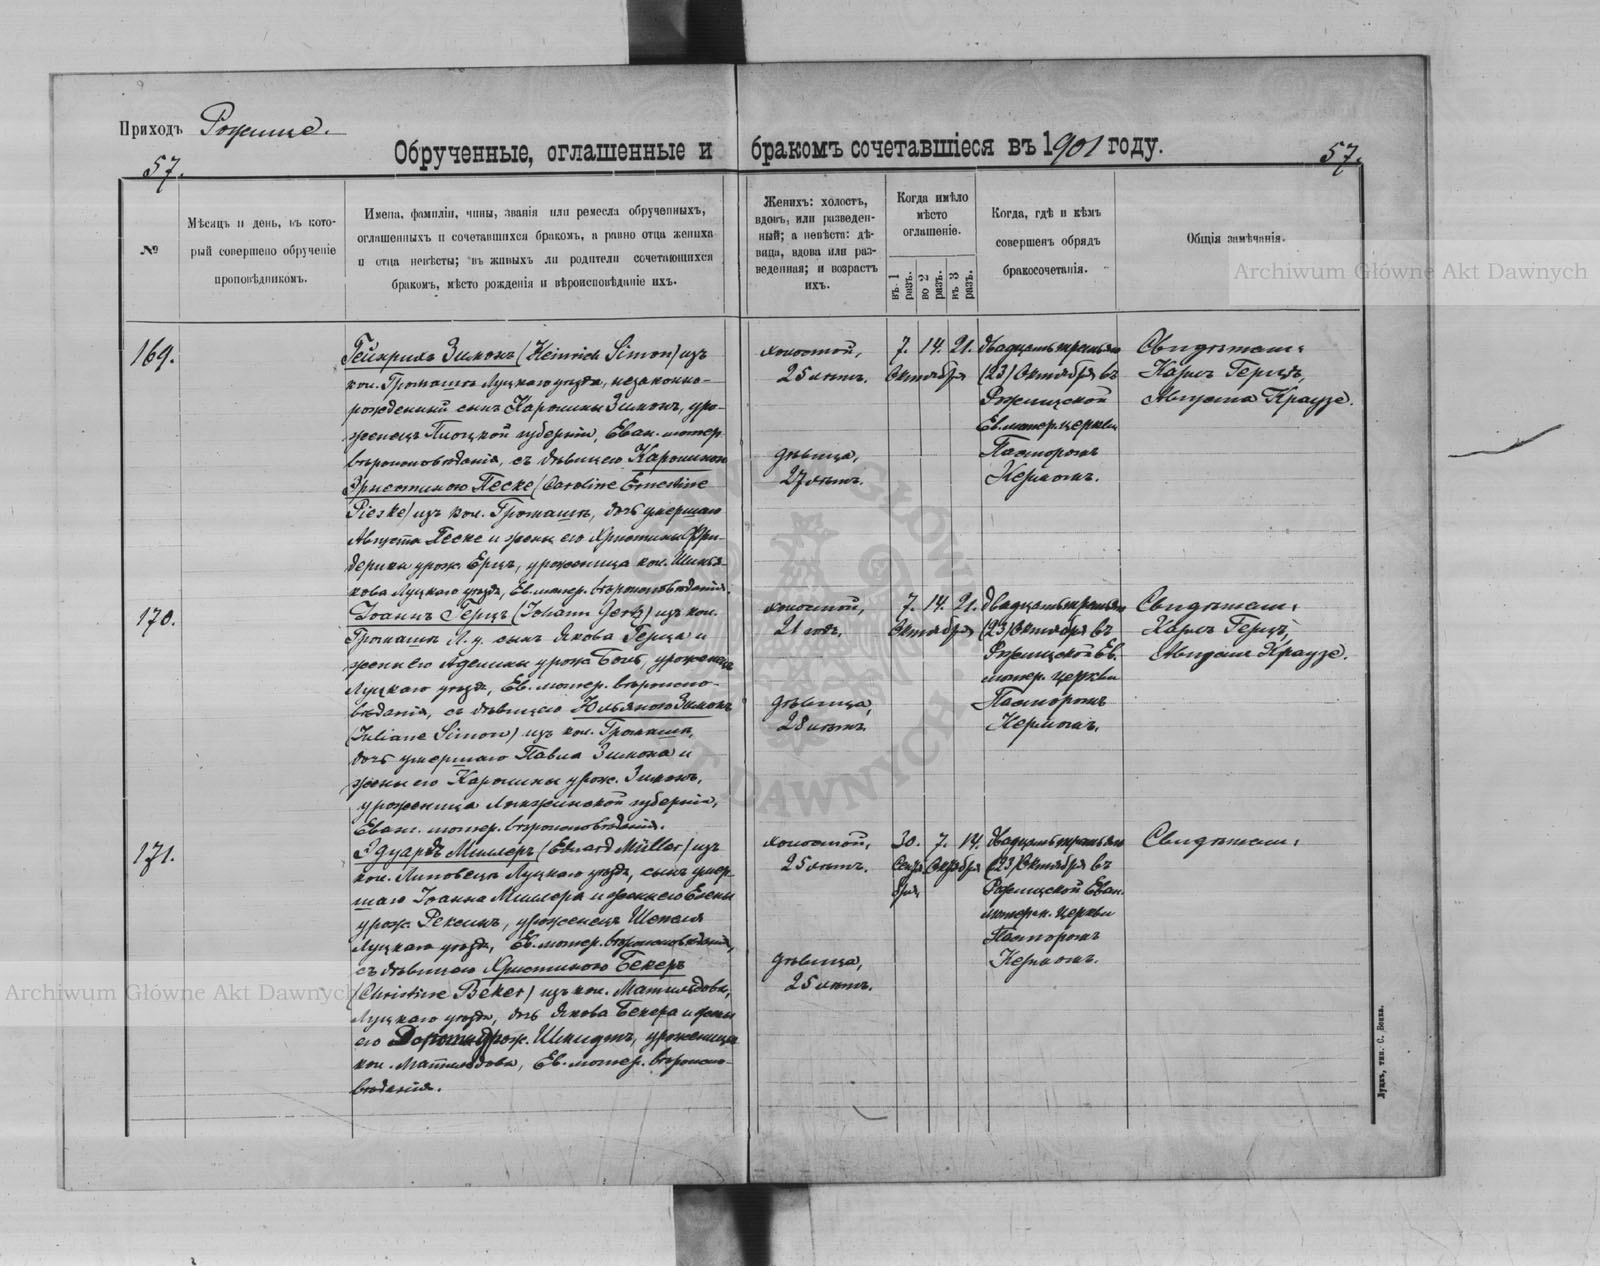 Приходъ Рожище.
57.
Обрученные, оглашенные и бракомъ сочетавшіеся въ 1901 году.
57.
№
Мѣсяцъ и день, въ кото-
рый совершено обрученіе
проповѣдникомъ.
Имена, фамиліи, чины, званія или ремесла обрученныхъ,
оглашенныхъ и сочетавшихся бракомъ, а равно отца жениха
и отца невѣсты; въ живыхъ ли родители сочетающихся
бракомъ, мѣсто рожденія и вѣроисповѣданіе ихъ.
Женихъ: холостъ,
вдовъ, или разведен-
ный; а невѣста: дѣ-
вица, вдова или раз-
веденная; и возрастъ
ихъ.
Когда имѣло
мѣсто
оглашеніе.
въ 1 разъ.
во 2 разъ.
въ 3 разъ.
Когда, гдѣ и кѣмъ
совершенъ обрядъ
бракосочетанія.
Общія замѣчанія.
169.
Гейнрихъ Зимонъ (Heinrich Simon) изъ
кол. Громашъ Луцкаго уѣзда, незаконно-
рожденный сынъ Каролины Зимонъ, уро-
женецъ Плоцкой губерніи, Еван. лютер.
вѣроисповѣданія, съ дѣвицею Каролиною
Эрнестиною Песке (Caroline Ernestine
Pieske) изъ кол. Громашъ, дочь умершаго
Августа Песке и жены его Христины Фри-
дерики урож. Ерцъ, уроженица кол.
Луцкаго уѣзда, Ев. лютер. вѣроисповѣданія.
холостой,
25 лѣтъ.
дѣвица,
27 лѣтъ.
7. 14. 21.
Октября
Двадцать третьяго
(23) Октября въ
Рожищской
Ев. лютер. церкви
Пасторомъ
Кермомъ.
Свидѣтели:
Карлъ Герцъ,
Августъ Краузе.
170.
Іоаннъ Герцъ (Johann Gertz) изъ кол.
Громашъ Л. у. сынъ Якова Герца и
жены его Аделины урож. , уроженецъ
Луцкаго уѣзда, Ев. лютер. вѣроиспо-
вѣданія, съ дѣвицею Юльяною Зимонъ
(Juliane Simon) изъ кол. Громашъ,
дочь умершаго Павла Зимона и
жены его Каролины урож. Зимонъ,
уроженица губерніи,
Еван. лютер. вѣроисповѣданія.
холостой,
21 годъ.
дѣвица,
28 лѣтъ.
7. 14. 21.
Октября
Двадцать третьяго
(23) Октября въ
Рожищской Ев.
лютер. церкви
Пасторомъ
Кермомъ.
Свидѣтели:
Карлъ Герцъ,
Августъ Краузе.
171.
Эдуардъ Миллеръ (Eduard Müller) изъ
кол. Липовецъ Луцкаго уѣзда, сынъ умер-
шаго Іоанна Миллера и жены его Елены
урож. , уроженецъ Шепеля
Луцкаго уѣзда, Ев. лютер. вѣроисповѣданія,
съ дѣвицею Христиною Бекеръ
(Christine Beker) изъ кол. Матильдова,
Луцкаго уѣзда, дочь Якова Бекера и жены
его урож. Шмидтъ, уроженица
кол. Матильдова, Ев. лютер. вѣроиспо-
вѣданія.
холостой,
25 лѣтъ.
дѣвица,
25 лѣтъ.
30. 7. 14.
Сентя- Октября
бря
Двадцать третьяго
(23) Октября въ
Рожищской Еван.
лютеран. церкви
Пасторомъ
Кермомъ.
Свидѣтели:
Луцкъ, тип. С. Бокка.
Archiwum Główne Akt Dawnych
Archiwum Główne Akt Dawnych